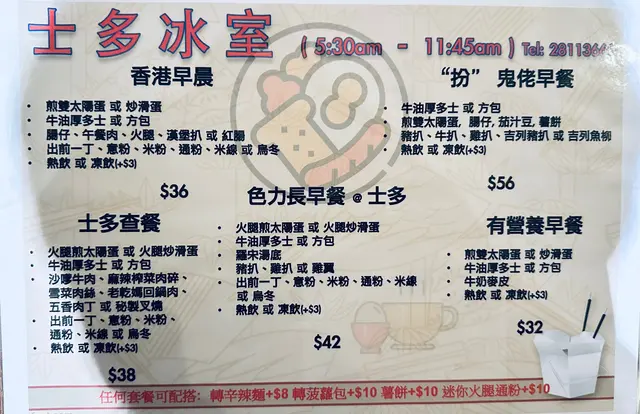 士多冰室 ( 5:30am - 11:45am ) Tel: 2811366
香港早晨
• 煎雙太陽蛋 或 炒滑蛋
• 牛油厚多士 或 方包
• 腸仔、午餐肉、火腿、漢堡扒 或 紅腸
• 出前一丁、意粉、米粉、通粉、米線 或 烏冬
• 熱飲 或 凍飲(+$3)
$36
“扮” 鬼佬早餐
• 牛油厚多士 或 方包
• 煎雙太陽蛋, 腸仔, 茄汁豆, 薯餅
• 豬扒、牛扒、雞扒、吉列豬扒 或 吉列魚柳
• 熱飲 或 凍飲(+$3)
$56
色力長早餐 @ 士多
• 火腿煎太陽蛋 或 火腿炒滑蛋
• 牛油厚多士 或 方包
• 羅宋湯底
• 豬扒、雞扒 或 雞翼
• 出前一丁、意粉、米粉、通粉、米線
或 烏冬
• 熱飲 或 凍飲(+$3)
$42
士多查餐
• 火腿煎太陽蛋 或 火腿炒滑蛋
• 牛油厚多士 或 方包
• 沙嗲牛肉、麻辣榨菜肉碎、
雪菜肉絲、老乾媽回鍋肉、
五香肉丁 或 秘製叉燒
• 出前一丁、意粉、米粉、
通粉、米線 或 烏冬
• 熱飲 或 凍飲(+$3)
$38
有營養早餐
• 煎雙太陽蛋 或 炒滑蛋
• 牛油厚多士 或 方包
• 牛奶麥皮
• 熱飲 或 凍飲(+$3)
$32
任何套餐可配搭: 轉辛辣麵+$8 轉菠蘿包+$10 薯餅+$10 迷你火腿通粉+$10